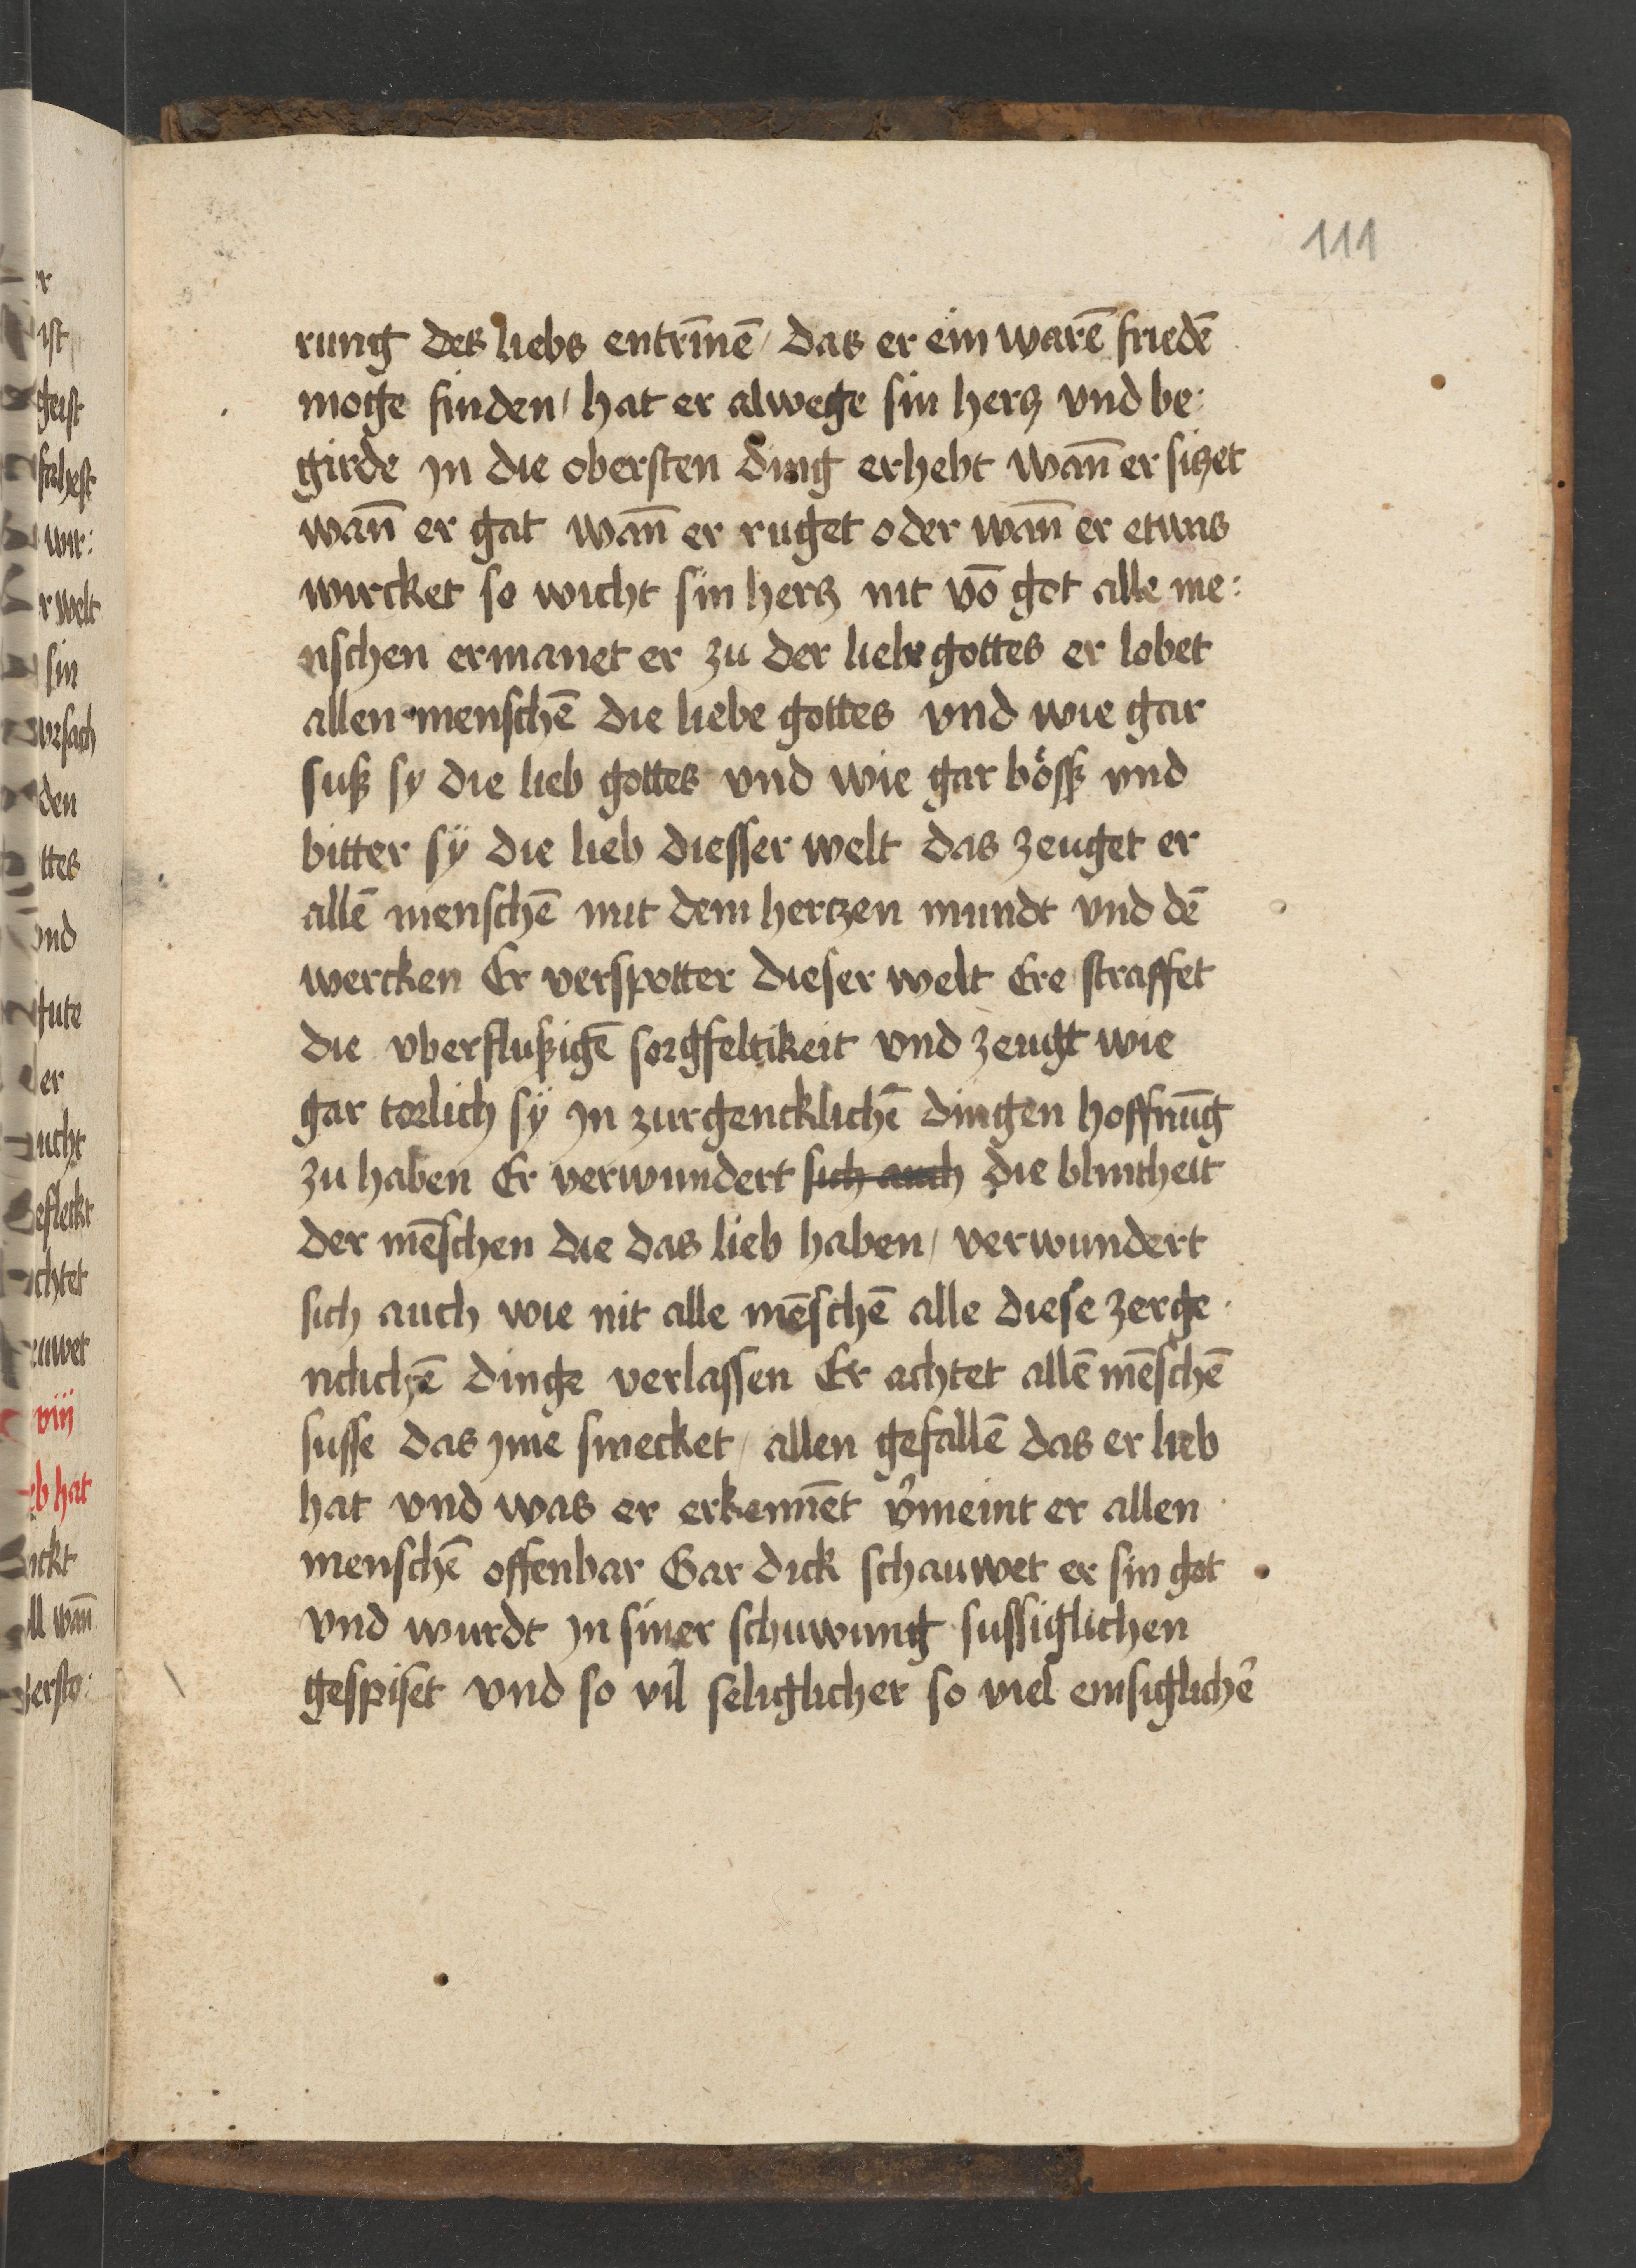 111
rung des liebs entrīnē / das er ein warē friedē
moge finden / hat er alwege sin hertz vnd be:
girde jn die obersten ding erhebt wan̄ er sitzet
wan̄ er gat wan̄ er ruget oder wan̄ er etwas
wircket so wicht sin hertz nit vō got alle me:
nschen ermanet er zu der liebe gottes er lobet
allen menschē die liebe gottes vnd wie gar
suß sy die lieb gottes vnd wie gar bößß vnd
bitter sÿ die lieb diesser welt das zeuget er
allē menschē mit dem hertzen mundt vnd dē
wercken Er verspotter dieser welt Ere straffet
die vberflußigē sorgfeltikeit vnd zeugt wie
gar torlich sÿ jn zurgencklichē dingen hoffnūg
zu haben Er verwundert sich auch die blintheit
der mēschen die das lieb haben / verwundert
sich auch wie nit alle mēschē alle diese zerge
nclichē dinge verlassen Er achtet allē mēschē
susse das jme smecket / allen gefallē das er lieb
hat vnd was er erkennēt v̄meint er allen
menschē offenbar Gar dick schauwet er sin got
vnd wurdt jn siner schuwung sussiglichen
gespiset vnd so vil seliglicher so viel emsiglichē
r
ist
geist
wir:
r welt
sin
vrsach
den
ttes
vnd
er
ucht
efleckt
chtet
viij
eb hat
ickt
ll wan̄